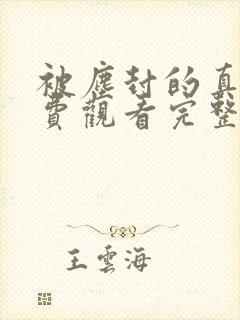 被塵封的真
費觀看完整
王雲海